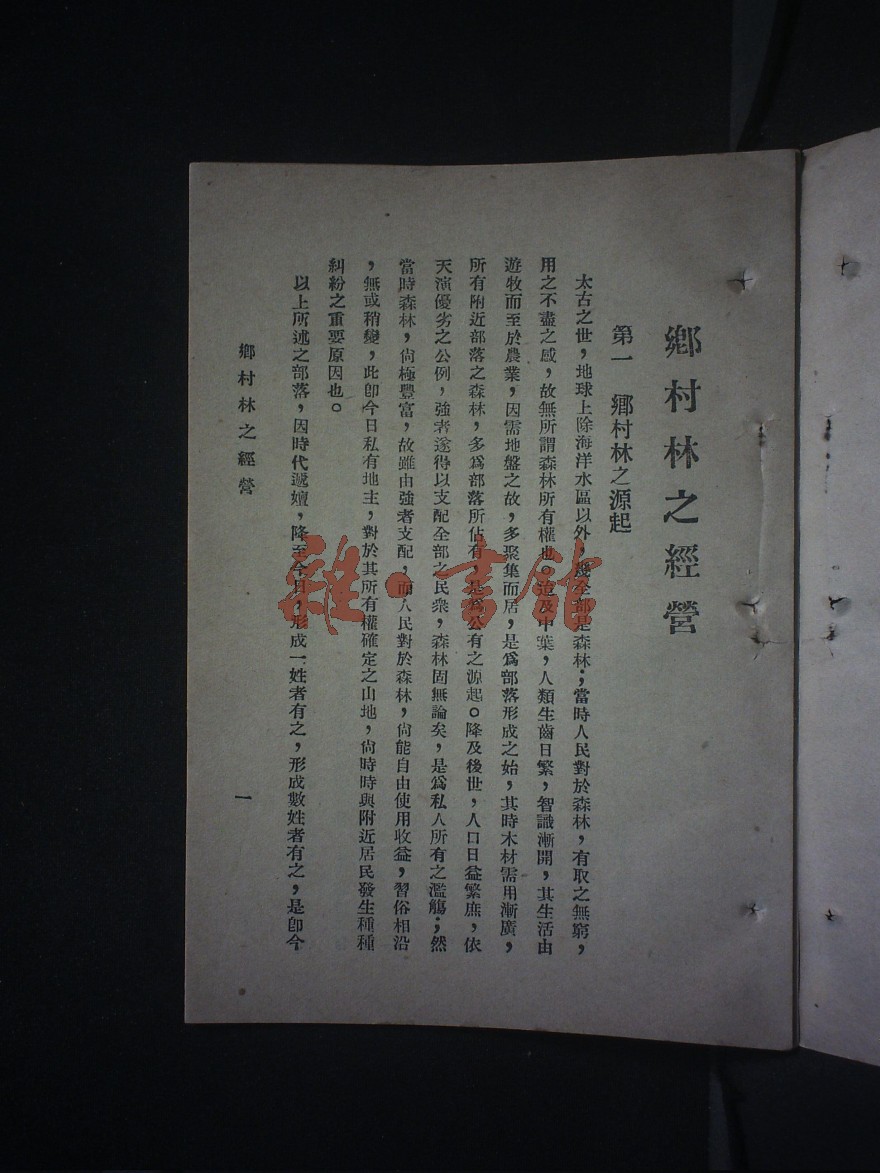 鄉村林之經營
第一　鄉村林之源起
太古之世，地球上除海洋水區以外，幾全部是森林；當時人民對於森林，有取之無窮，
用之不盡之感，故無所謂森林所有權也。迨及中葉，人類生齒日繁，智識漸開，其生活由
遊牧而至於農業，因需地盤之故，多聚集而居，是爲部落形成之始，其時木材需用漸廣，
所有附近部落之森林，多爲部落所佔有，是爲公有之源起。降及後世，人口日益繁庶，依
天演優劣之公例，強者遂得以支配全部之民衆，森林固無論矣，是爲私人所有之濫觴；然
當時森林，尙極豐富，故雖由強者支配，而人民對於森林，尙能自由使用收益，習俗相沿
，無或稍變，此卽今日私有地主，對於其所有權確定之山地，尙時時與附近居民發生種種
糾紛之重要原因也。
以上所述之部落，因時代遞嬗，降至今日，形成一姓者有之，形成數姓者有之，是卽今
鄉村林之經營
一
雜·書館